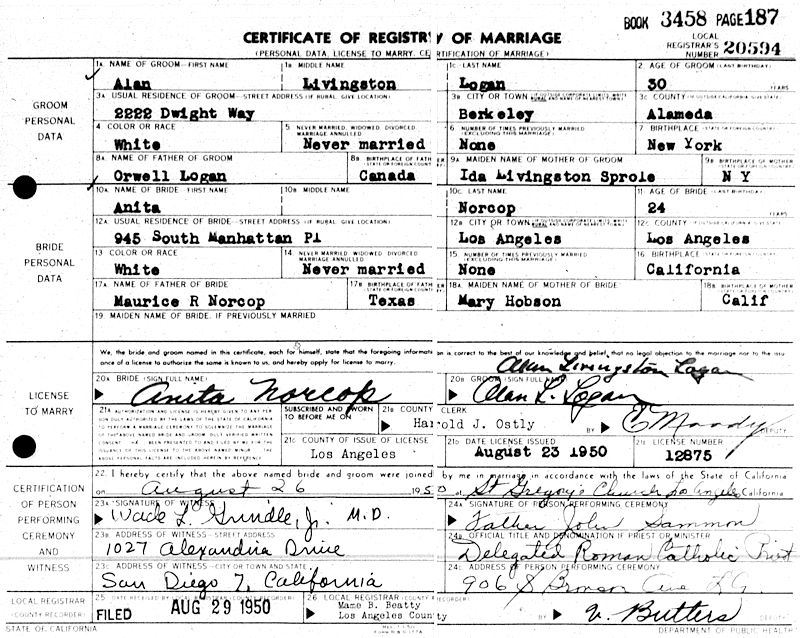 BOOK 3458 PAGE 187
CERTIFICATE OF REGISTRY OF MARRIAGE
(PERSONAL DATA, LICENSE TO MARRY, CERTIFICATION OF MARRIAGE)
LOCAL REGISTRAR'S NUMBER 20594
GROOM PERSONAL DATA
1A NAME OF GROOM—FIRST NAME 1B MIDDLE NAME 1C LAST NAME 2. AGE OF GROOM (LAST BIRTHDAY)
Alan Livingston Logan 30 YEARS
3A USUAL RESIDENCE OF GROOM—STREET ADDRESS (IF RURAL, GIVE LOCATION) 3B CITY OR TOWN 3C COUNTY
2222 Dwight Way Berkeley Alameda
4 COLOR OR RACE 5 NEVER MARRIED, WIDOWED, DIVORCED, MARRIAGE ANNULLED 6 NUMBER OF TIMES PREVIOUSLY MARRIED (EXCLUDING THIS MARRIAGE) 7 BIRTHPLACE (STATE OR FOREIGN COUNTRY)
White Never married None New York
8A NAME OF FATHER OF GROOM 8B BIRTHPLACE OF FATHER (STATE OR FOREIGN COUNTRY) 9A MAIDEN NAME OF MOTHER OF GROOM 9B BIRTHPLACE OF MOTHER
Orwell Logan Canada Ida Livingston Sprole N Y
BRIDE PERSONAL DATA
10A NAME OF BRIDE—FIRST NAME 10B MIDDLE NAME 10C LAST NAME 11 AGE OF BRIDE (LAST BIRTHDAY)
Anita Norcop 24 YEARS
12A USUAL RESIDENCE OF BRIDE—STREET ADDRESS (IF RURAL, GIVE LOCATION) 12B CITY OR TOWN 12C COUNTY
945 South Manhattan Pl Los Angeles Los Angeles
13 COLOR OR RACE 14 NEVER MARRIED, WIDOWED, DIVORCED, MARRIAGE ANNULLED 15 NUMBER OF TIMES PREVIOUSLY MARRIED (EXCLUDING THIS MARRIAGE) 16 BIRTHPLACE (STATE OR FOREIGN COUNTRY)
White Never married None California
17A NAME OF FATHER OF BRIDE 17B BIRTHPLACE OF FATHER (STATE OR FOREIGN COUNTRY) 18A MAIDEN NAME OF MOTHER OF BRIDE 18B BIRTHPLACE OF MOTHER
Maurice R Norcop Texas Mary Hobson Calif
19 MAIDEN NAME OF BRIDE, IF PREVIOUSLY MARRIED
LICENSE TO MARRY
We, the bride and groom named in this certificate, each for himself, state that the foregoing information is correct to the best of our knowledge and belief, that no legal objection to the marriage nor to the issuance of a license to authorize the same is known to us, and hereby apply for license to marry.
Alan Livingston Logan
20A BRIDE (SIGN FULL NAME) 20B GROOM (SIGN FULL NAME)
Anita Norcop Alan L. Logan
21A AUTHORIZATION AND LICENSE IS HEREBY GIVEN TO ANY PERSON DULY AUTHORIZED BY THE LAWS OF THE STATE OF CALIFORNIA TO PERFORM A MARRIAGE CEREMONY TO SOLEMNIZE THE MARRIAGE OF THE ABOVE NAMED BRIDE AND GROOM
SUBSCRIBED AND SWORN TO BEFORE ME ON
COUNTY CLERK
Harold J. Ostly BY E Moody DEPUTY
21C COUNTY OF ISSUE OF LICENSE 21D DATE LICENSE ISSUED 21E LICENSE NUMBER
Los Angeles August 23 1950 12875
CERTIFICATION OF PERSON PERFORMING CEREMONY AND WITNESS
22. I hereby certify that the above named bride and groom were joined by me in marriage in accordance with the laws of the State of California
on August 26 1950 at St Gregory's Church Los Angeles California
23A SIGNATURE OF WITNESS 24A SIGNATURE OF PERSON PERFORMING CEREMONY
Wade L. Grindle, Jr. M.D. Father John Sammon
23B ADDRESS OF WITNESS—STREET ADDRESS 24B OFFICIAL TITLE AND DENOMINATION IF PRIEST OR MINISTER
1027 Alexandria Drive Delegated Roman Catholic Priest
23C ADDRESS OF WITNESS—CITY OR TOWN STATE 24C ADDRESS OF PERSON PERFORMING CEREMONY
San Diego 7, California 906 S Bronson Ave LA
LOCAL REGISTRAR (COUNTY RECORDER)
25 DATE RECEIVED BY LOCAL REGISTRAR 26 LOCAL REGISTRAR
FILED AUG 29 1950 Mame B. Beatty
Los Angeles County BY V. Butters DEPUTY
LOCAL REGISTRAR (COUNTY RECORDER)
STATE OF CALIFORNIA DEPARTMENT OF PUBLIC HEALTH